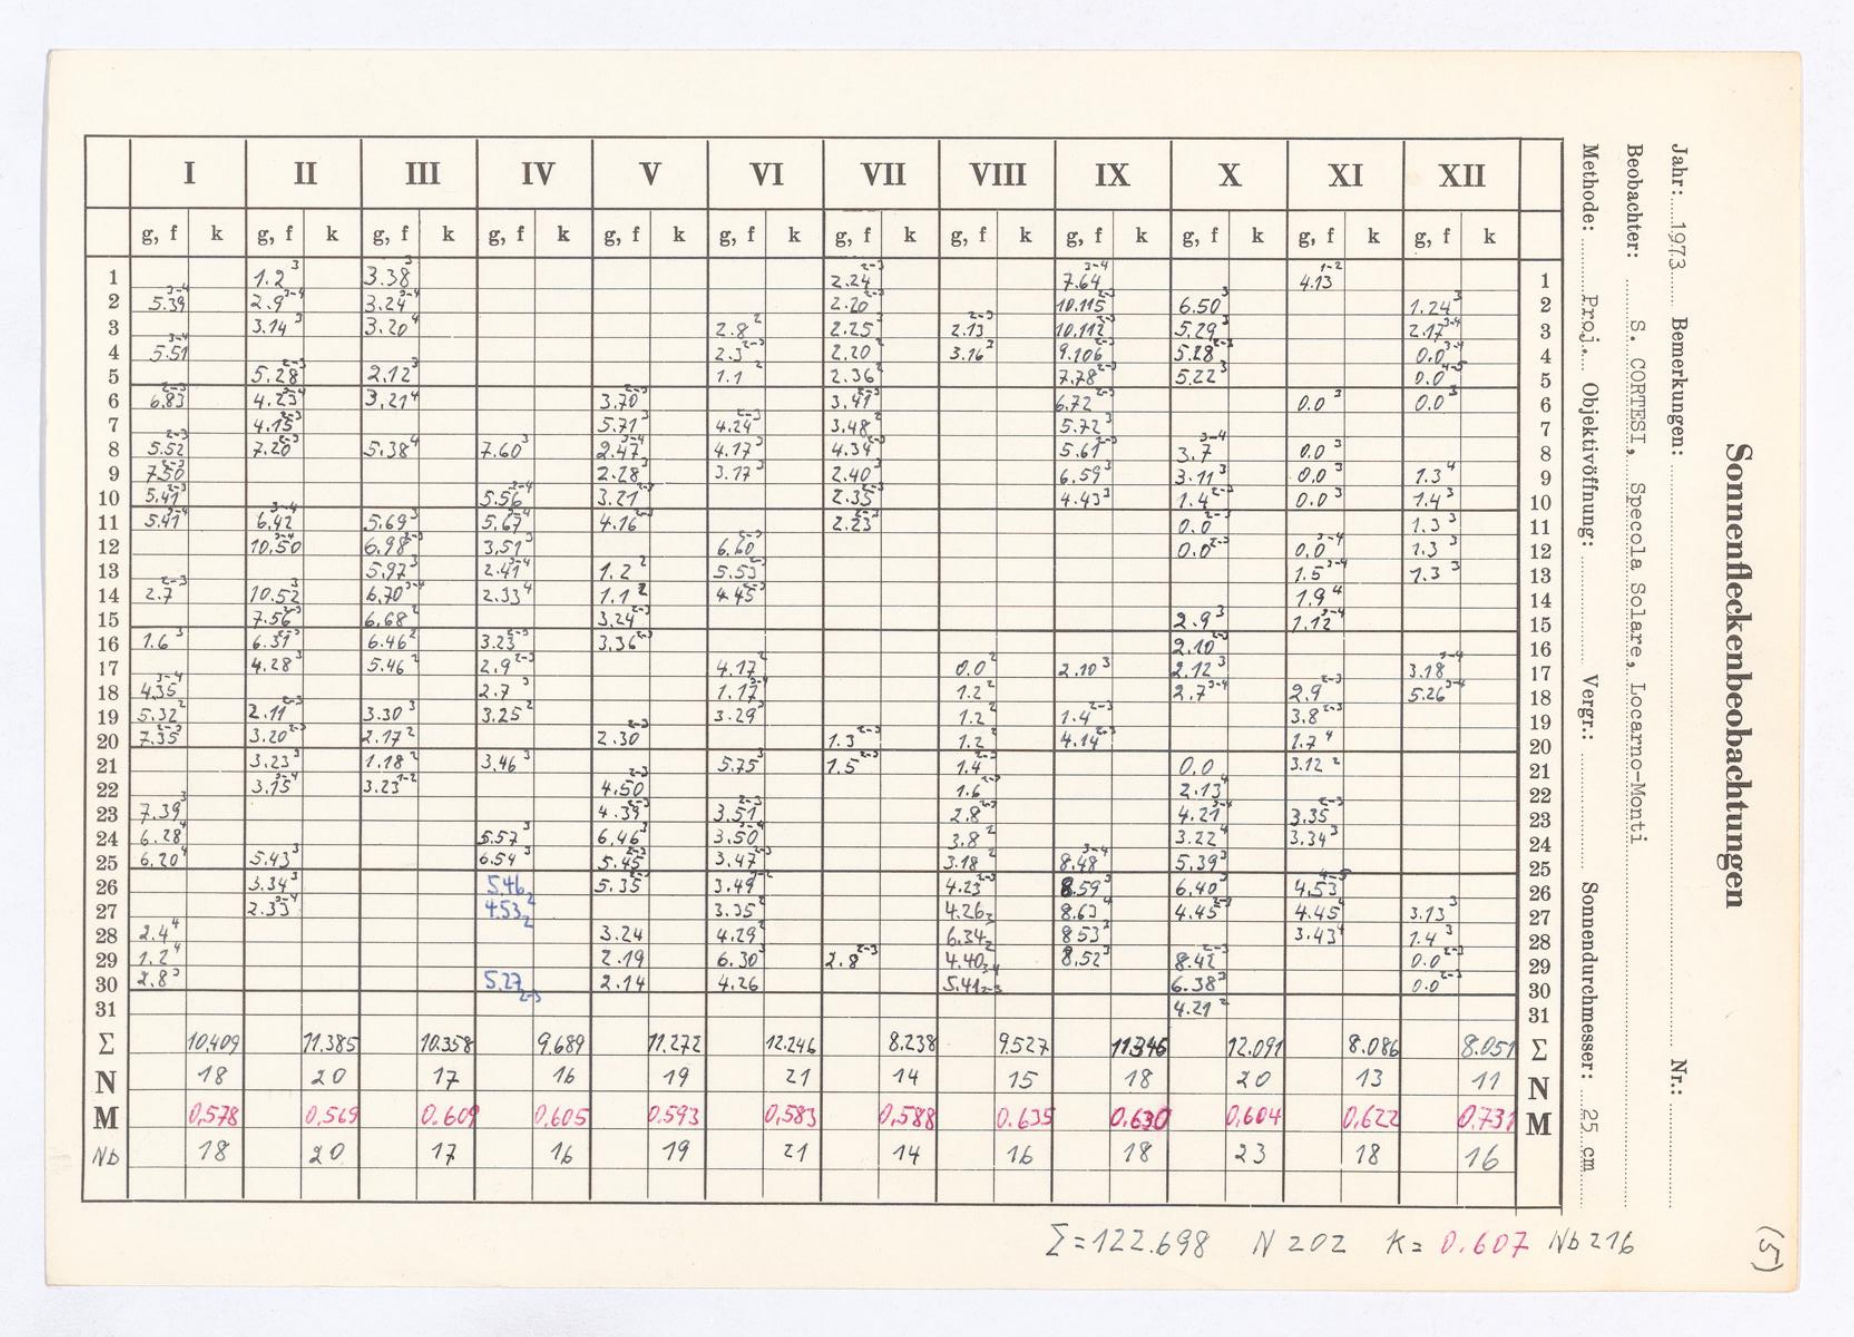 Sonnenfleckenbeobachtungen
Jahr: 1973 Bemerkungen: Nr.:
Beobachter: S. CORTESI, Specola Solare, Locarno-Monti
Methode: Proj. Objektivöffnung: Vergr.: Sonnendurchmesser: 25 cm
I II III IV V VI VII VIII IX X XI XII
g, f k g, f k g, f k g, f k g, f k g, f k g, f k g, f k g, f k g, f k g, f k g, f k
1 1.2³ 3.38³ 2.24²⁻³ 7.64³⁻⁴ 4.13¹⁻² 1
2 5.39³⁻⁴ 2.9³⁻⁴ 3.24³⁻⁴ 2.20²⁻³ 10.115²⁻³ 6.50³ 1.24³ 2
3 3.14³ 3.20⁴ 2.8² 2.25³ 2.13²⁻³ 10.112²⁻³ 5.29³ 2.17³⁻⁴ 3
4 5.51³⁻⁴ 2.3²⁻³ 2.20² 3.16³ 9.106²⁻³ 5.28²⁻³ 0.0³⁻⁴ 4
5 5.28²⁻³ 2.12³ 1.1² 2.36² 7.78²⁻³ 5.22³ 0.0⁴⁻⁵ 5
6 6.83²⁻³ 4.23³⁻⁴ 3.21⁴ 3.70²⁻³ 3.41²⁻³ 6.72²⁻³ 0.0³ 0.0³ 6
7 4.15²⁻³ 5.71³ 4.24²⁻³ 3.48² 5.72³ 7
8 5.52²⁻³ 7.20²⁻³ 5.38⁴ 7.60³ 2.47³⁻⁴ 4.17³ 4.34²⁻³ 5.61²⁻³ 3.7³⁻⁴ 0.0³ 8
9 7.50²⁻³ 2.28³ 3.17³ 2.40² 6.59³ 3.11³ 0.0³ 1.3⁴ 9
10 5.41²⁻³ 5.56³⁻⁴ 3.21²⁻³ 2.35²⁻³ 4.43³ 1.4²⁻³ 0.0³ 1.4³ 10
11 5.41³⁻⁴ 6.42³⁻⁴ 5.69³ 5.67³⁻⁴ 4.16²⁻³ 2.23²⁻³ 0.0²⁻³ 1.3³ 11
12 10.50³⁻⁴ 6.98²⁻³ 3.51³ 6.60²⁻³ 0.0²⁻³ 0.0³⁻⁴ 1.3³ 12
13 5.97³ 2.41³⁻⁴ 1.2² 5.53²⁻³ 1.5³⁻⁴ 1.3³ 13
14 2.7²⁻³ 10.52³ 6.70³⁻⁴ 2.33⁴ 1.1² 4.45²⁻³ 1.9⁴ 14
15 7.56²⁻³ 6.68² 3.24²⁻³ 2.9³ 1.12³⁻⁴ 15
16 1.6³ 6.31²⁻³ 6.46² 3.23²⁻³ 3.36²⁻³ 2.10²⁻³ 16
17 4.28³ 5.46² 2.9²⁻³ 4.17² 0.0² 2.10³ 2.12³ 3.18³⁻⁴ 17
18 4.35³⁻⁴ 2.7³ 1.17³⁻⁴ 1.2² 2.7³⁻⁴ 2.9²⁻³ 5.26³⁻⁴ 18
19 5.32² 2.11²⁻³ 3.30³ 3.25² 3.29³ 1.2² 1.4²⁻³ 3.8²⁻³ 19
20 7.35²⁻³ 3.20²⁻³ 2.17² 2.30²⁻³ 1.3²⁻³ 1.2² 4.14²⁻³ 1.7⁴ 20
21 3.23³ 1.18² 3.46³ 5.75³ 1.5²⁻³ 1.4²⁻³ 0.0 3.12² 21
22 3.15³⁻⁴ 3.23¹⁻² 4.50²⁻³ 1.6²⁻³ 2.13⁴ 22
23 7.39³ 4.39²⁻³ 3.51²⁻³ 2.8²⁻³ 4.21³⁻⁴ 3.35²⁻³ 23
24 6.28⁴ 5.57³ 6.46³ 3.50³⁻⁴ 3.8² 3.22⁴ 3.34³ 24
25 6.20⁴ 5.43³ 6.54³ 5.45²⁻³ 3.47²⁻³ 3.18² 8.48³⁻⁴ 5.39³ 25
26 3.34³ 5.46₂ 5.35²⁻³ 3.49 4.23²⁻³ 8.59³ 6.40³ 4.53⁴⁻⁵ 26
27 2.33³⁻⁴ 4.53₂ 3.35² 4.26₂ 8.63⁴ 4.45²⁻³ 4.45⁴ 3.13³ 27
28 2.4⁴ 3.24 4.29² 6.34₂ 8.53³ 3.43⁴ 1.4³ 28
29 1.2⁴ 2.19 6.30³ 2.8²⁻³ 4.40₃₋₄ 8.52³ 8.42²⁻³ 0.0²⁻³ 29
30 2.8³ 5.27₂₋₃ 2.14 4.26 5.41₂₋₃ 6.38³ 0.0²⁻³ 30
31 4.21² 31
Σ 10.409 11.385 10.358 9.689 11.272 12.246 8.238 9.527 11.346 12.091 8.086 8.051 Σ
N 18 20 17 16 19 21 14 15 18 20 13 11 N
M 0,578 0,569 0.609 0,605 0.593 0,583 0,588 0.635 0.630 0,604 0,622 0,731 M
Nb 18 20 17 16 19 21 14 16 18 23 18 16
Σ = 122.698 N 202 K = 0.607 Nb 216
(5)